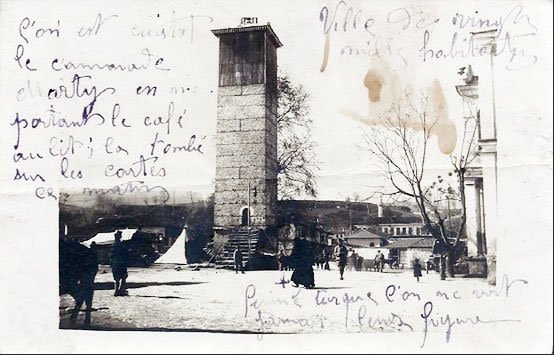 l'on est
le camarade
Marty en me
portant le café
au lit ; la tombé
sur les cartes
ce matin
Ville de vingt
mille habitants
Femme turque l'on ne voit
jamais leurs figure